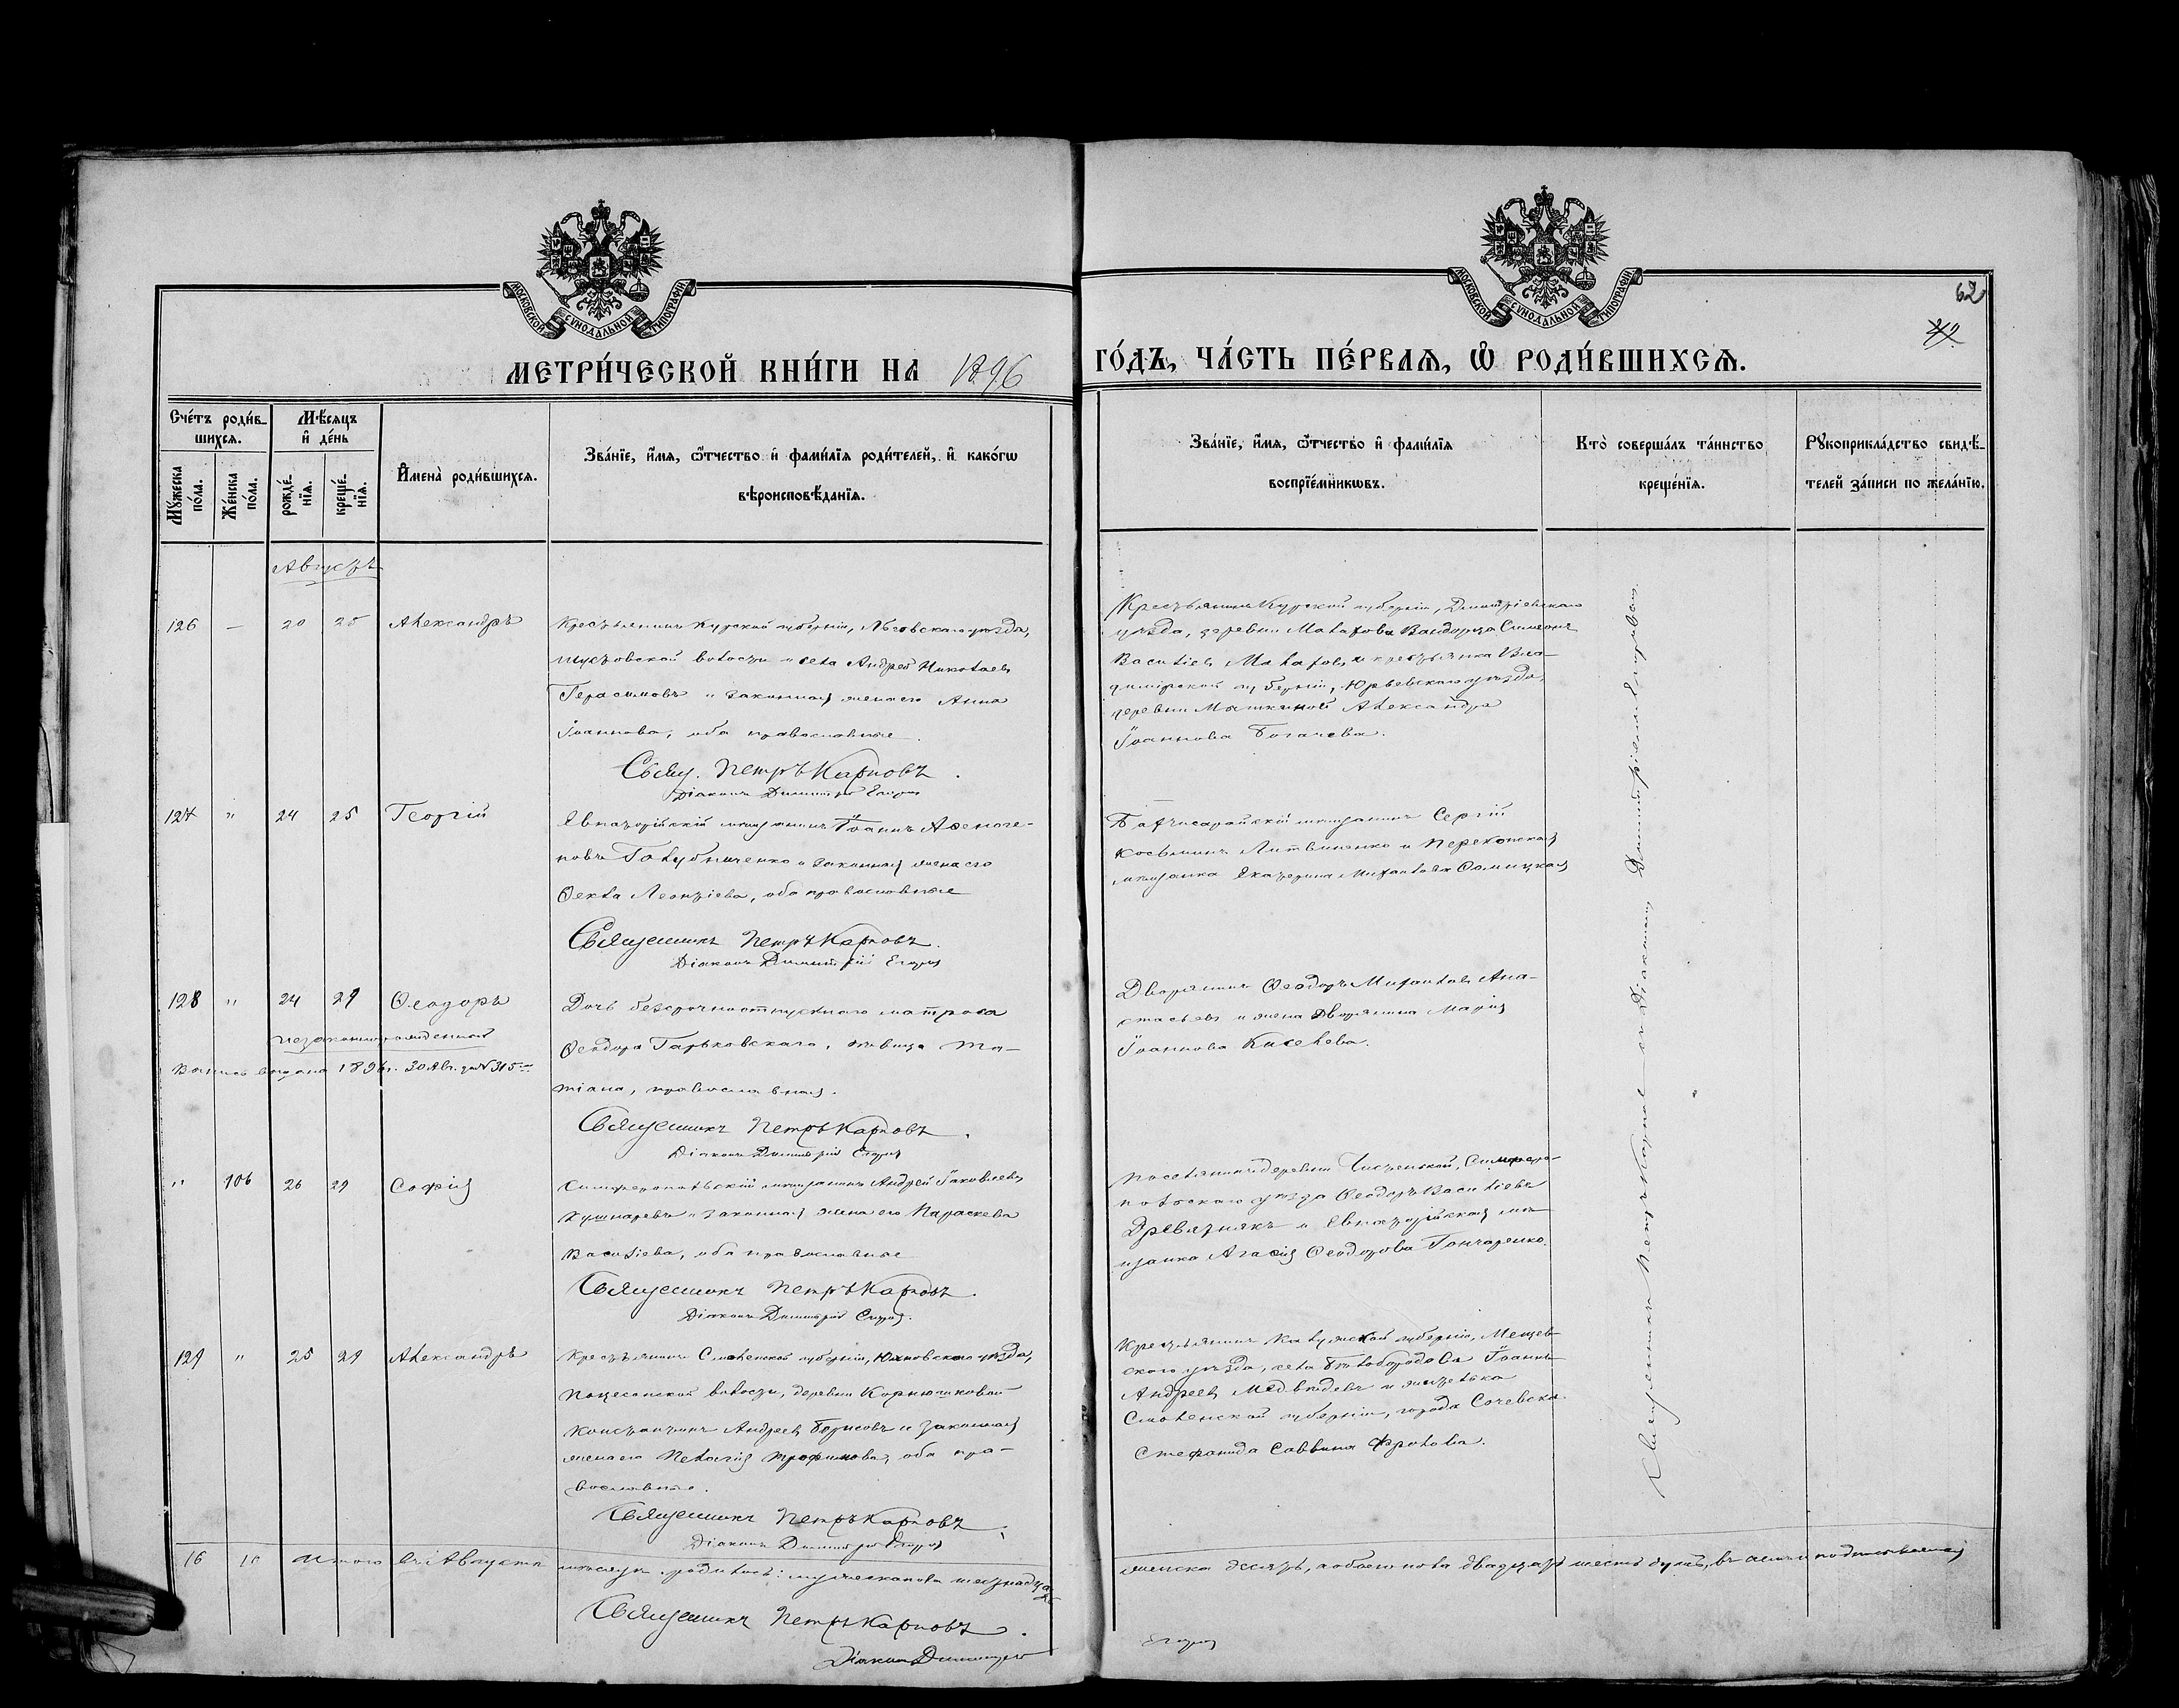 МОСКОВСКОЙ СѴНОДАЛЬНОЙ ТИПОГРАФІИ
МОСКОВСКОЙ СѴНОДАЛЬНОЙ ТИПОГРАФІИ
62
42
МЕТРИ́ЧЕСКОЙ КНИ́ГИ НА 1896
ГО́ДЪ, ЧА́СТЬ ПЕ́РВАѦ, Ѡ҆ РОДИ́ВШИХСѦ.
Сче́тъ роди́в-
шихсѧ.
Мꙋ́жеска по́ла.
Же́нска по́ла.
Мѣ́сѧцъ
и҆ де́нь
рожде́-
нїѧ.
креще́-
нїѧ.
И҆мена̀ роди́вшихсѧ.
Зва́нїе, и҆́мѧ, ѻ҆́тчество и҆ фами́лїѧ роди́телей, и҆ како́гѡ
вѣроисповѣ́данїѧ.
Зва́нїе, и҆́мѧ, ѻ҆́тчество и҆ фами́лїѧ
воспрїе́мникѡвъ.
Кто̀ соверша́лъ та́инство
креще́нїѧ.
Рꙋкоприкла́дство свидѣ́-
телей за́писи по жела́нїю.
Августъ
126 — 20 25 Александръ
Крестьянинъ Курской губерніи, Льговскаго уѣзда,
волости и села Андрей Николаевъ
Герасимовъ и законная жена его Анна
Іоаннова, оба православные.
Свящ. Петръ Карповъ.
Діаконъ Димитрій
Крестьянинъ Курской губерніи, Дмитріевскаго
уѣзда, деревни Махарова Симеонъ
Васильевъ и крестьянка Вла-
димірской губерніи, Юрьевскаго уѣзда,
деревни Александра
Іоаннова Богачева.
127 " 24 25 Георгій
Евпаторійскій мѣщанинъ Іоаннъ Аѳеноге-
новъ Голубниченко и законная жена его
Ѳекла Леонтіева, оба православные
Священникъ Петръ Карповъ.
Діаконъ Димитрій
Бахчисарайскій мѣщанинъ Сергій
Косьминъ Литвиненко и Перекопская
мѣщанка Екатерина Михайлова
128 " 24 29 Ѳеодоръ
незаконнорожденный
выдана 1896 г. 30 Авг. за № 315
Дочь безсрочноотпускного матроса
Ѳеодора Гарьковскаго, дѣвица Та-
тіана, православная.
Священникъ Петръ Карповъ.
Діаконъ Димитрій
Дворянинъ Ѳеодоръ Михайловъ Ана-
стасьевъ и жена дворянина Марія
Іоаннова Киселева.
" 106 26 29 Софія
Симферопольскій мѣщанинъ Андрей Іаковлевъ
Кушнаревъ и законная жена его Параскева
Васильева, оба православные
Священникъ Петръ Карповъ.
Діаконъ Димитрій
Поселянинъ деревни Чистенькой, Симферо-
польскаго уѣзда Ѳеодоръ Васильевъ
Древятнякъ и Евпаторійская мѣ-
щанка Агаѳія Ѳеодорова Гончаренко.
129 " 25 29 Александръ
Крестьянинъ Смоленской губерніи, Юхновскаго уѣзда,
волости, деревни
Константинъ Андреевъ Борисовъ и законная
жена его Пелагія Трофимова, оба пра-
вославные.
Священникъ Петръ Карповъ.
Діаконъ Димитрій
Крестьянинъ Калужской губерніи, Мещев-
скаго уѣзда, села Іоаннъ
Андреевъ Медвѣдевъ и
Смоленской губерніи, города Сычевска
Стефанида Саввина Фролова.
Священникъ Петръ Карповъ и Діаконъ Димитрій
16 10 Итого въ Августѣ мѣсяцѣ родилось: мужеска пола шестнадцать
женска десять, а обоего пола двадцать шесть душъ, въ чемъ и подписываемся
Священникъ Петръ Карповъ.
Діаконъ Димитрій